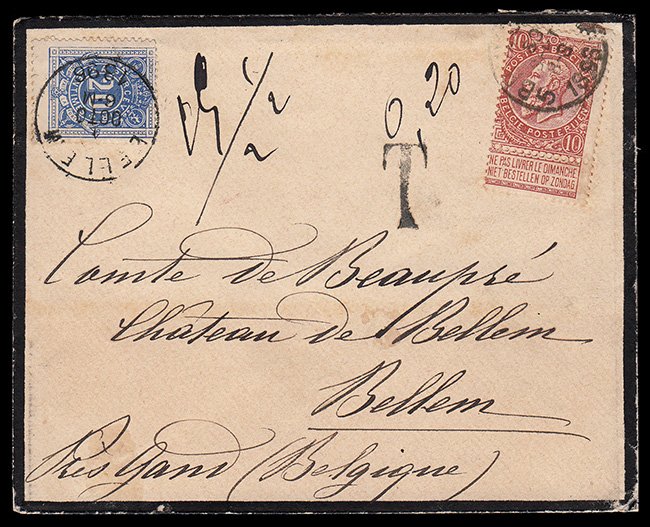 20
BELLEM
OCTO
1896
2/2
0,20
T
10
POSTES
BELGIE POSTERIJEN
10
NE PAS LIVRER LE DIMANCHE
NIET BESTELLEN OP ZONDAG
Comte de Beaupré
Château de Bellem
Bellem
Près Gand (Belgique)